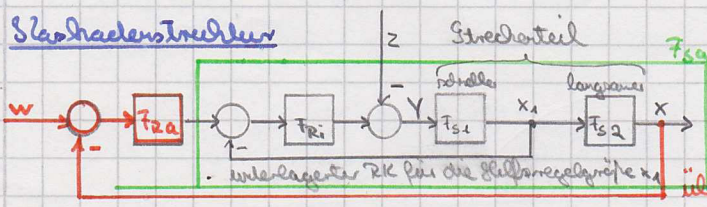 Kaskadenstruktur
z
Streckenteil
F_Sa
schneller
langsamer
w
F_Ra
F_Ri
Y
F_S1
x_1
F_S2
x
-
-
-
unterlagerter RK für die Hilfsregelgröße x_1